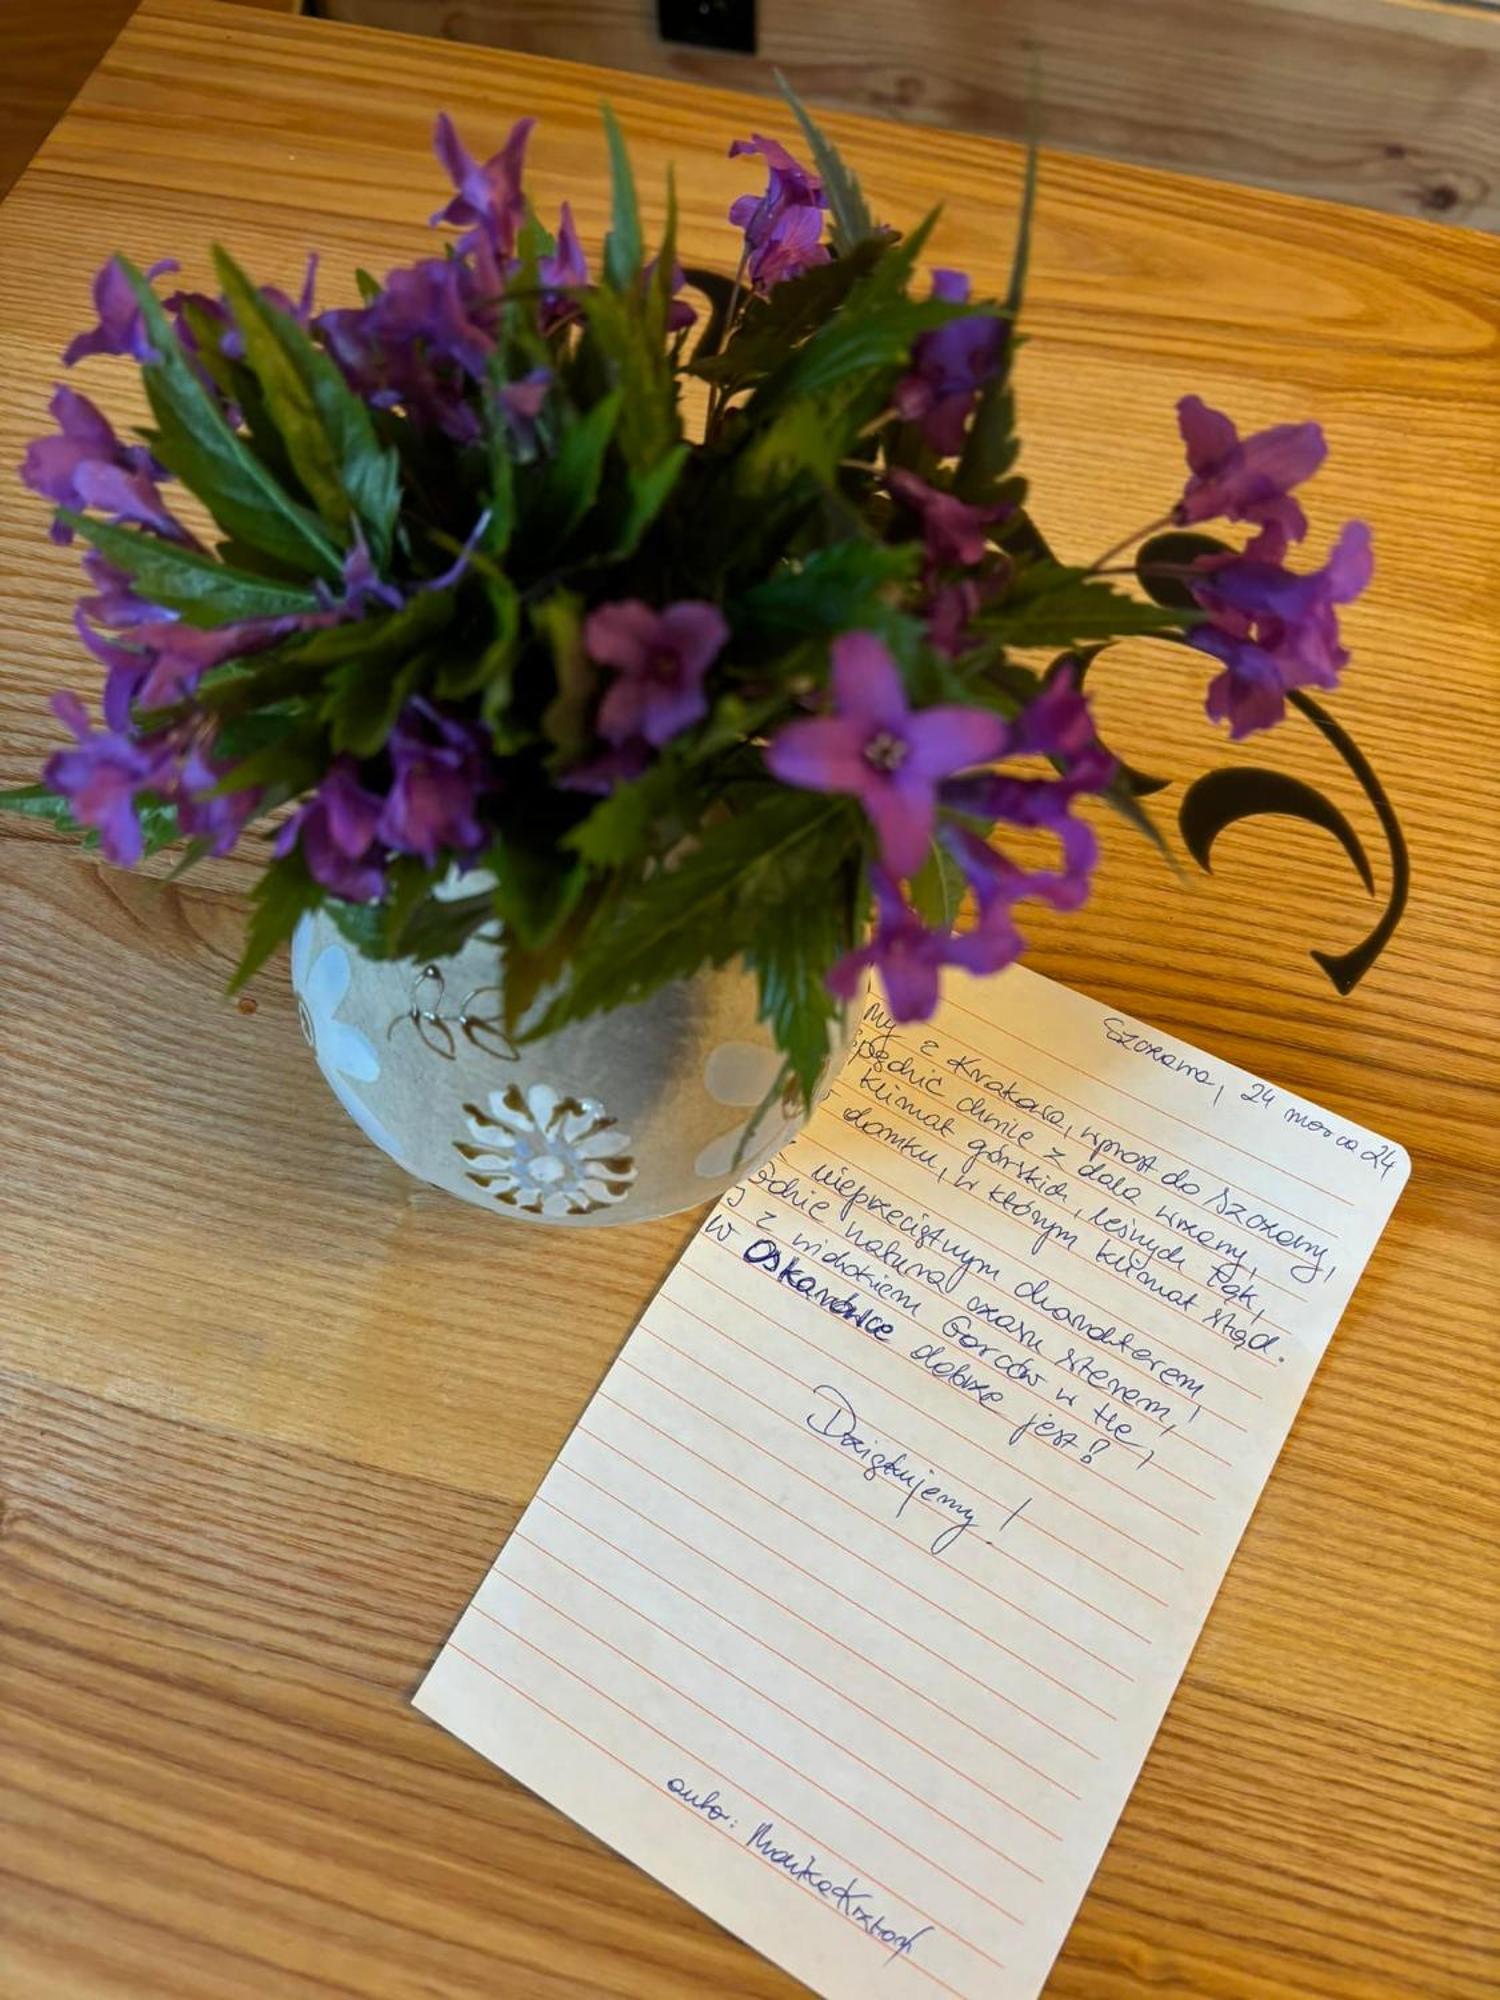 Szczawa, 24 marca 24
My z Krakowa, wprost do Szczawy,
spędzić chwile z dala wrzawy,
klimat górskich, leśnych łąk,
w domku, w którym klimat stąd.
nieprzeciętnym charakterem
gdzie natura czasu sterem,
z widokiem Gorców w tle,
w Oskarówce dobrze jest!
Dziękujemy!
autor: Monika